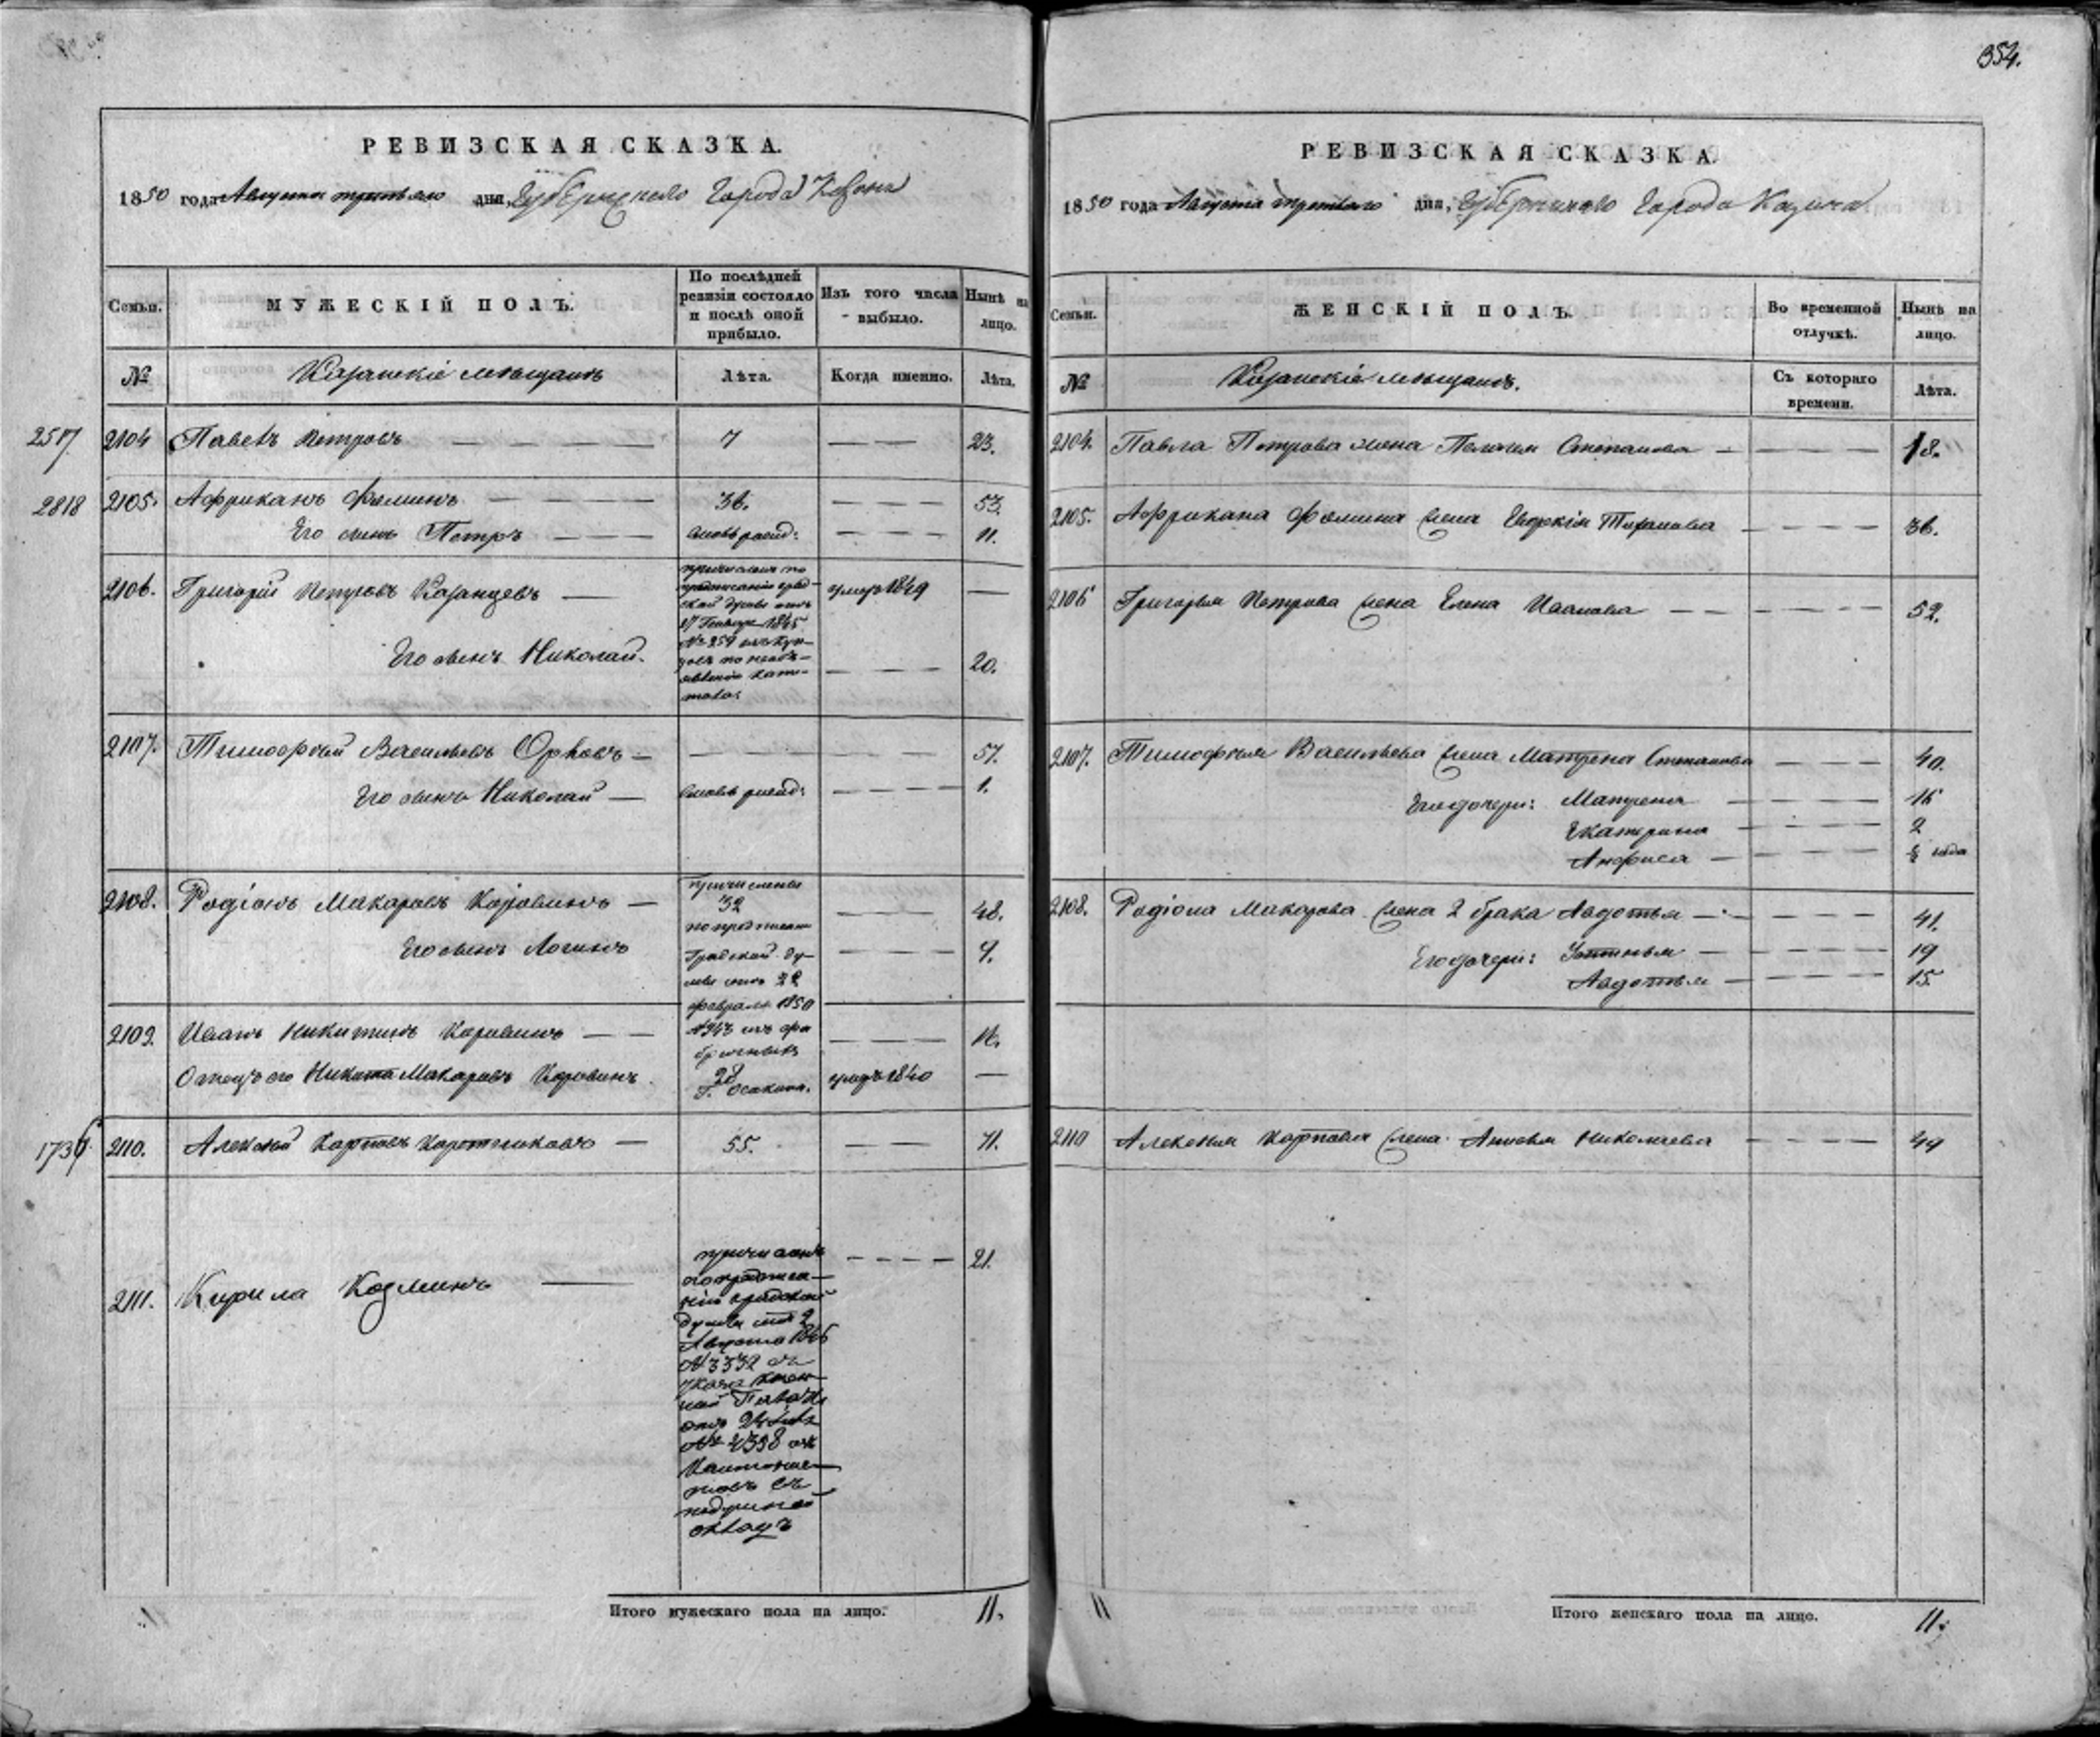 354.
РЕВИЗСКАЯ СКАЗКА.
1850 года Августа третьяго дня, Губернскаго Города Казани
Семьи.
МУЖЕСКІЙ ПОЛЪ.
По послѣдней
ревизіи состояло
и послѣ оной
прибыло.
Изъ того числа
выбыло.
Нынѣ на
лицо.
№
Казанскіе мѣщане
Лѣта.
Когда именно.
Лѣта.
2104 Павелъ Петровъ 7 23.
2818 2105. Африканъ Фоминъ 36. 53.
Его сынъ Петръ вновь рожд: 11.
2106. Григорій Петровъ Казанцевъ умеръ 1849
причисленъ по
предписанію град-
ской думы отъ
17 Генваря 1845
№ 259 изъ куп-
цовъ по необъ-
явленію капи-
тала:
Его сынъ Николай. 20.
2107. Тимофей Васильевъ Орловъ 57.
Его сынъ Николай вновь рожд: 1.
2108. Родіонъ Макаровъ Коровинъ 48.
Его сынъ Логинъ 9.
причислены
32
по предписан
Градской ду-
мы отъ 22
февраля 1850
2109. Иванъ Никитинъ Коровинъ 16.
Отецъ его Никита Макаровъ Коровинъ 28 умеръ 1840
Г. Осокина.
2110. Алексѣй Карповъ Коротниковъ 55. 71.
2111. Кирила Козминъ 21.
причисленъ
по предписа-
нію градской
думы отъ 2
Августа 1846
№ 3332 съ
указа Казен-
ной Палаты
отъ 24 Іюля
№ 4398 изъ
Кантонис-
товъ съ
подушной
окладъ
Итого мужескаго пола на лицо. 11.
РЕВИЗСКАЯ СКАЗКА.
1850 года Августа третьяго дня, Губернскаго Города Казани
Семьи.
ЖЕНСКІЙ ПОЛЪ.
Во временной
отлучкѣ.
Нынѣ на
лицо.
№
Казанскіе мѣщане.
Съ котораго
времени.
Лѣта.
2104. Павла Петрова жена Пелагея Степанова 18.
2105. Африкана Фомина жена Евдокія 36.
2106 Григорья Петрова жена Елена Иванова 52.
2107. Тимофея Васильева жена Матрена Степанова 40.
Его дочери: Матрена 16
Екатерина 2
Анфиса ½ года
2108. Родіона Макарова жена 2 брака Авдотья 41.
Его дочери: Устинья 19
Авдотья 15.
2110 Алексѣя Карпова жена Анисья Николаева 49
Итого женскаго пола на лицо. 11.